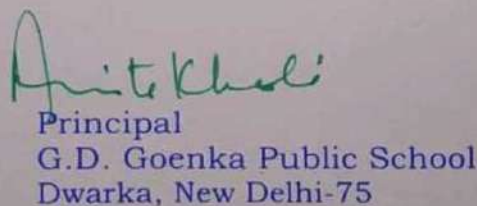 Principal
G.D. Goenka Public School
Dwarka, New Delhi-75